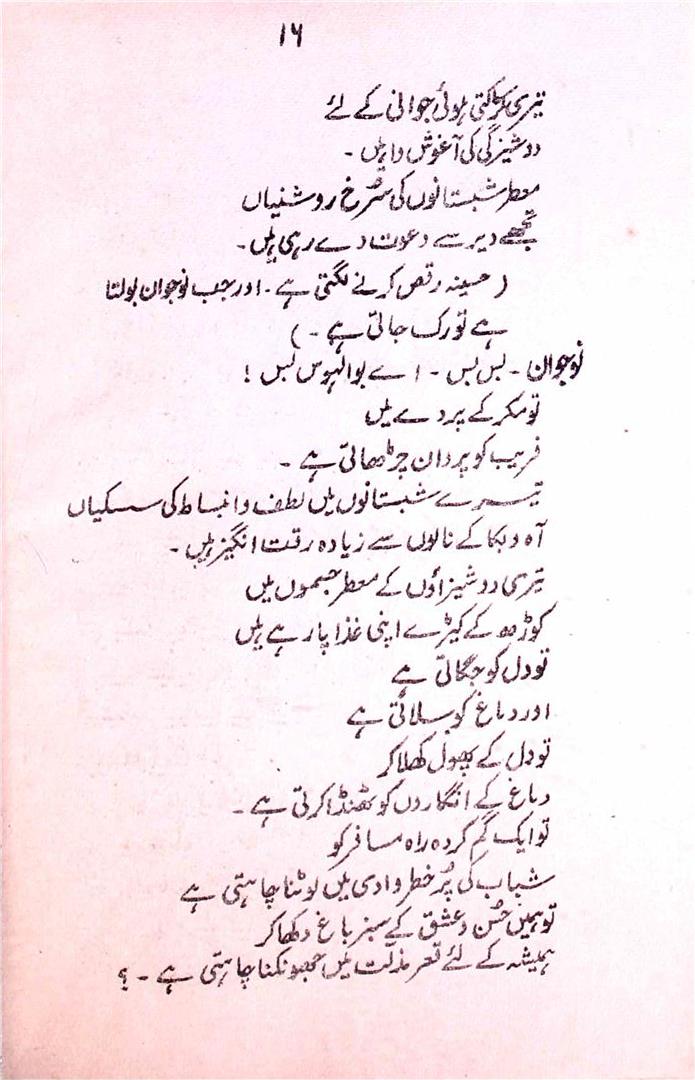 ۱۶
تیری کڑکتی ہوئی جوانی کے لئے
دوشیزگی کی آغوش وا ہیں ۔
معطر شبستانوں کی سُرخ روشنیاں
تجھے دیر سے دعوت دے رہی ہیں ۔
( حسینہ رقص کرنے لگتی ہے ۔ اور جب نوجوان بولتا
ہے تو رک جاتی ہے ۔ )
نوجوان ۔ بس بس ۔ اے بوالہوس بس !
تو مکر کے پردے میں
فریب کو پروان چڑھاتی ہے ۔
تیرے شبستانوں میں لطف و انبساط کی سسکیاں
آہ و بکا کے نالوں سے زیادہ رقت انگیز ہیں ۔
تیری دوشیزاؤں کے معطر جسموں میں
کوڑھ کے کیڑے اپنی غذا پا رہے ہیں
تو دل کو جگاتی ہے
اور دماغ کو سلاتی ہے
تو دل کے پھول کھلا کر
دماغ کے انگاروں کو ٹھنڈا کرتی ہے ۔
تو ایک گم کردہ راہ مسافر کو
شباب کی پُر خطر وادی میں لوٹنا چاہتی ہے
تو ہمیں حُسن و عشق کے سبز باغ دکھا کر
ہمیشہ کے لئے قعر مذلت میں جھونکنا چاہتی ہے ۔ ؟